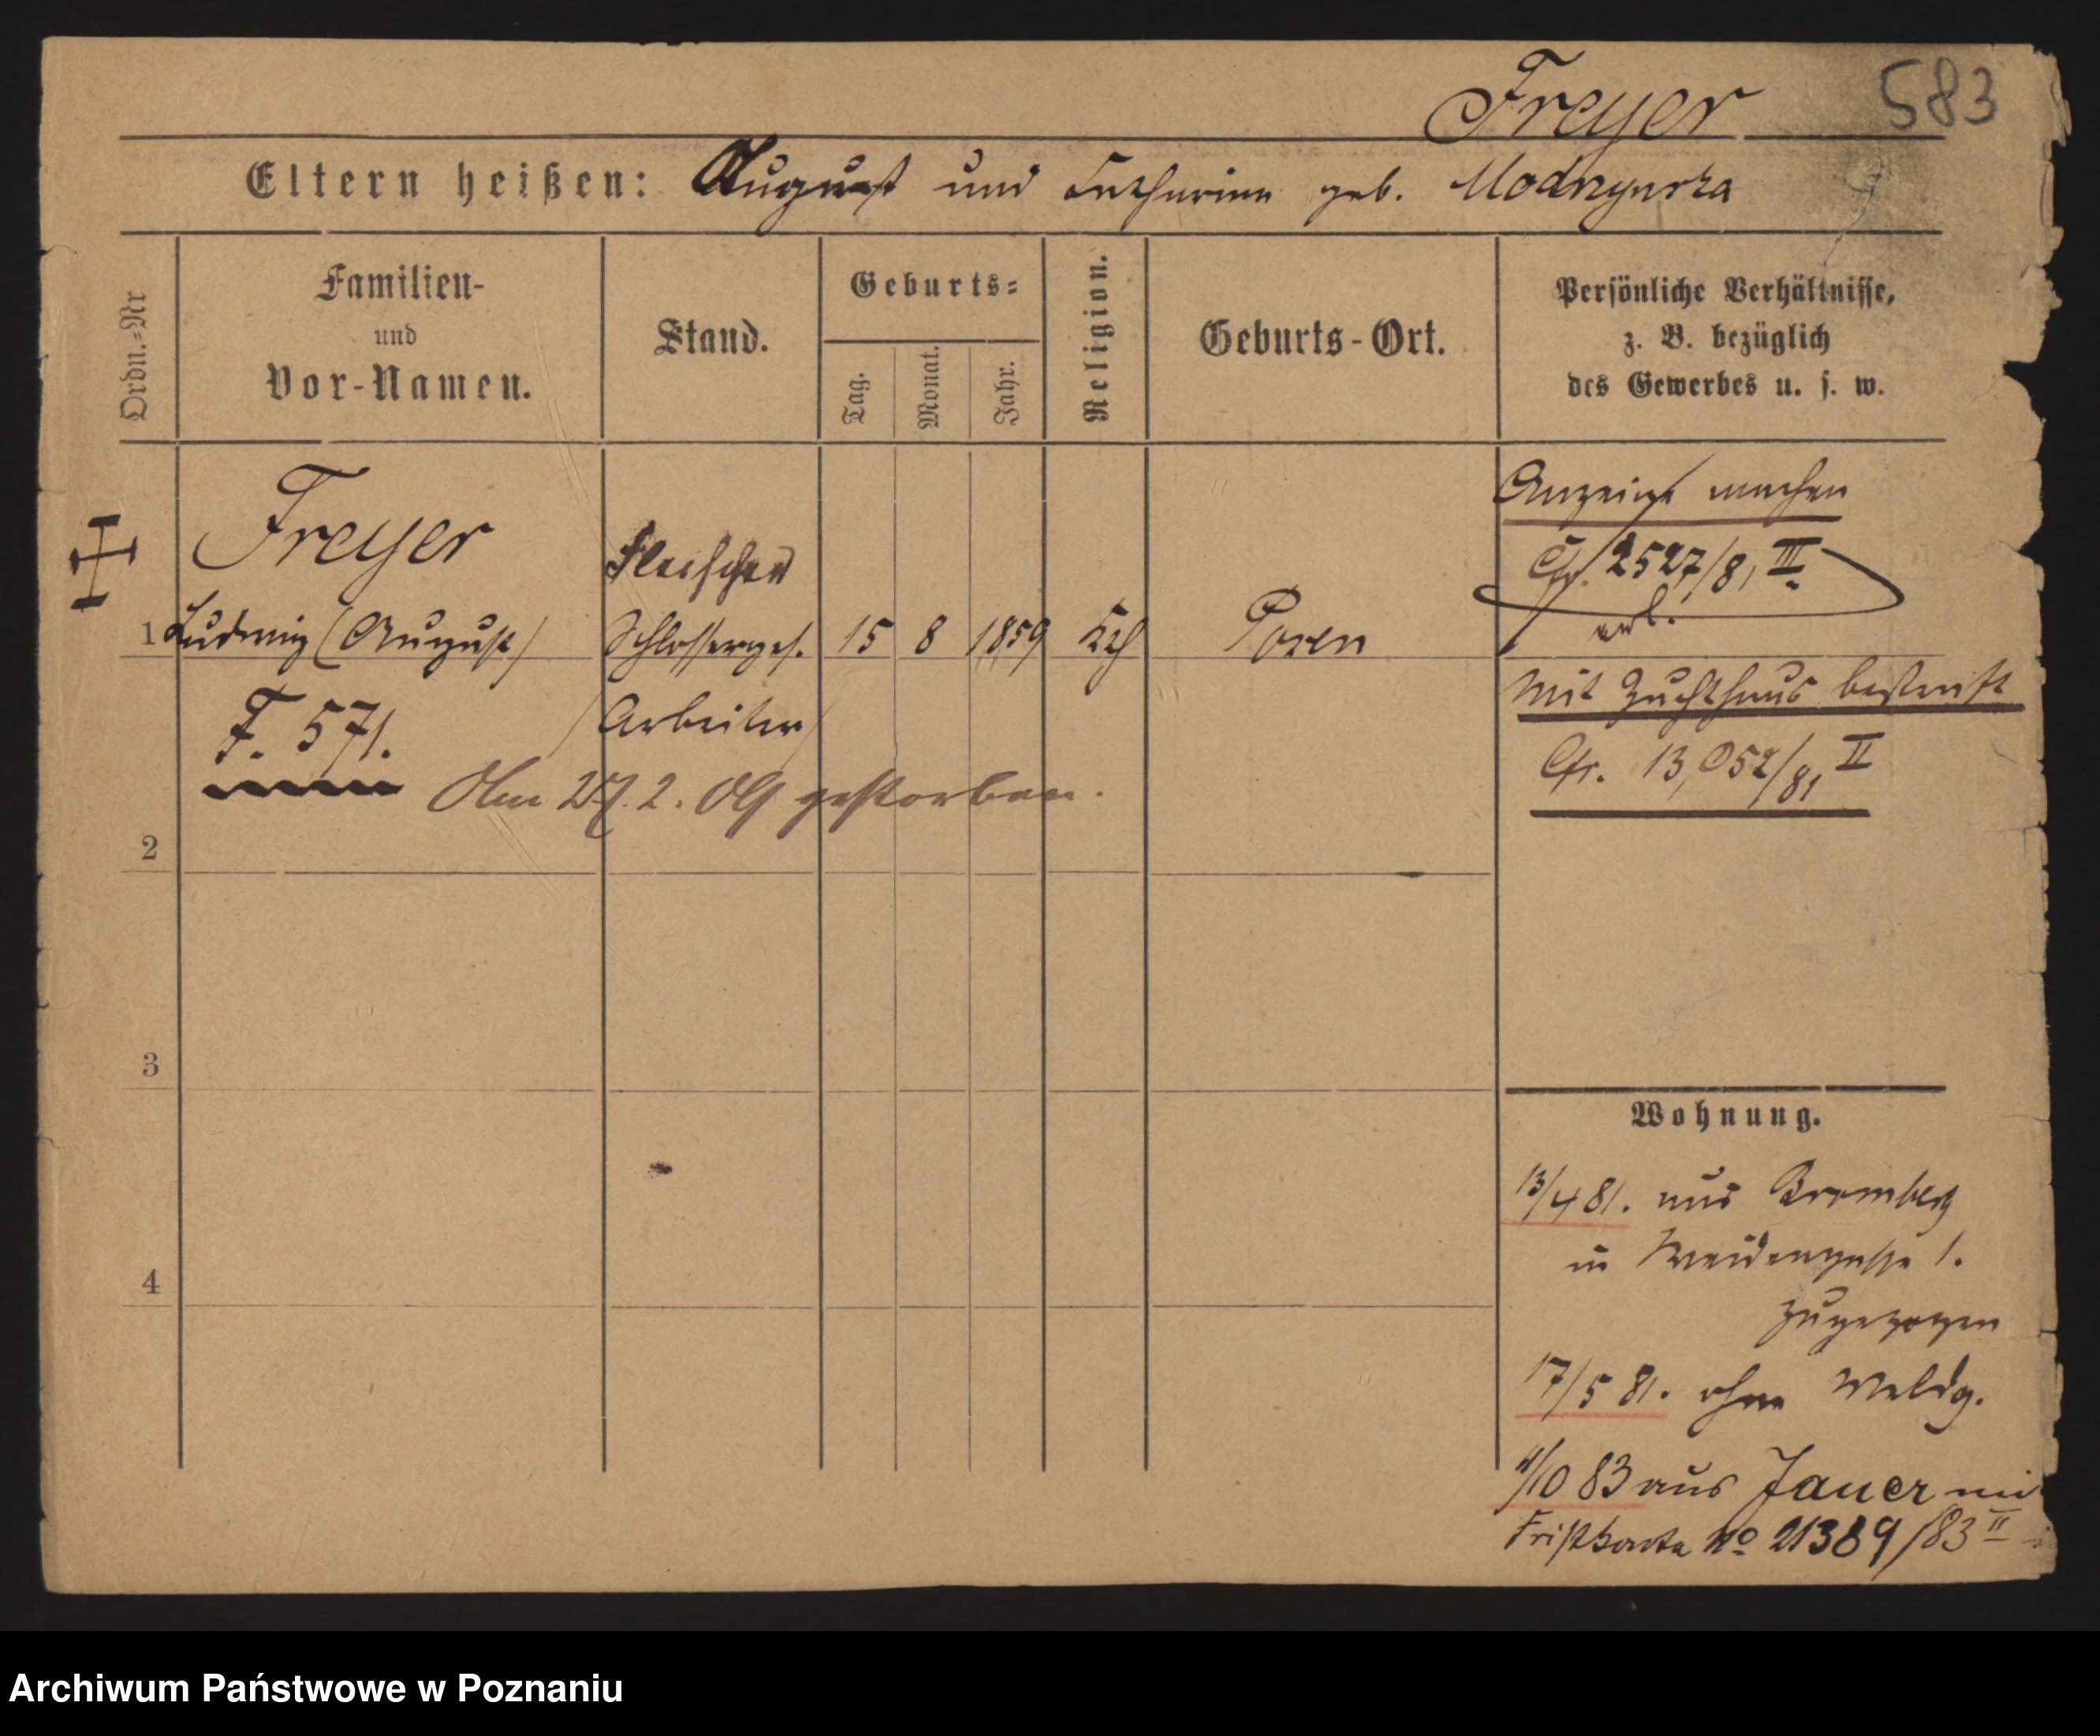 Freyer
583
Eltern heißen: August und Katharina geb. Modrzynska
Ordn.=Nr
Familien-
und
Vor-Namen.
Stand.
Geburts=
Tag.
Monat.
Jahr.
Religion.
Geburts-Ort.
Persönliche Verhältnisse,
z. B. bezüglich
des Gewerbes u. s. w.
Freyer
Fleischer
1 Ludwig (August) Schlosserges. 15 8 1859 Kth Posen
(Arbeiter)
F. 571.
Am 27. 2. 09 gestorben.
2
3
4
Anzeige machen
Cfr. 2527/81 III
erl.
Mit Zuchthaus bestraft
Cfr. 13,052/81 II
Wohnung.
13/4 81. aus Bromberg
in Weidengasse 1.
zugezogen
17/5 81. ohne Meldg.
4/10 83 aus Jauer mi
Fristkarte No 21389/83 II
Archiwum Państwowe w Poznaniu